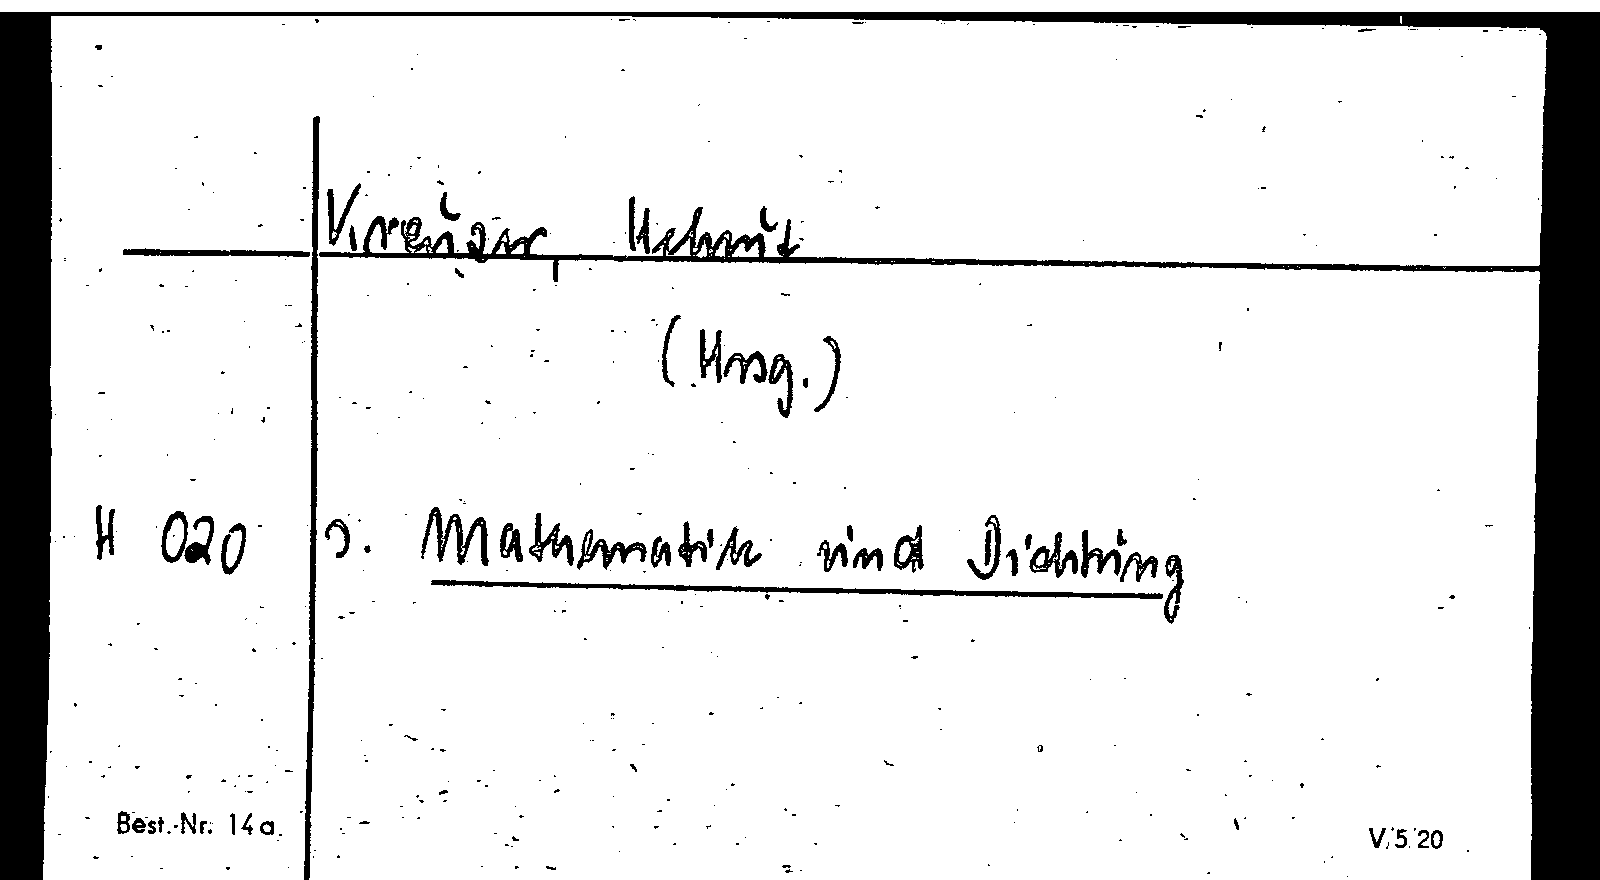 Kreuzer, Helmut
(Hrsg.)
H 020 s. Mathematik und Dichtung
Best.-Nr. 14a
V/5/20